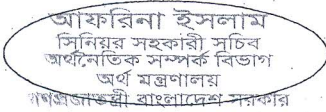 আফরিনা ইসলাম
সিনিয়র সহকারী সচিব
অর্থনৈতিক সম্পর্ক বিভাগ
অর্থ মন্ত্রণালয়
গণপ্রজাতন্ত্রী বাংলাদেশ সরকার